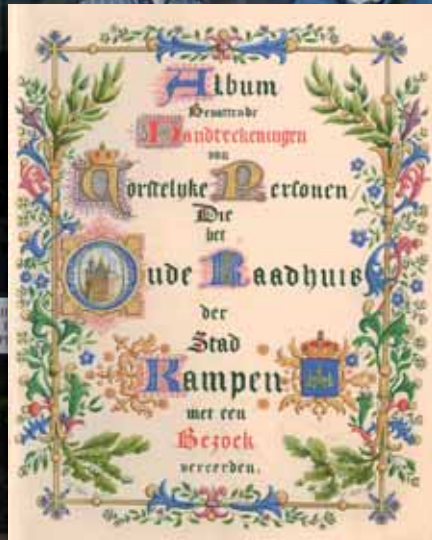 Album
Bevattende
Handteekeningen
van
Vorstelyke Personen
Die
het
Oude Raadhuis
der
Stad
Kampen
met een
Bezoek
vereerden.